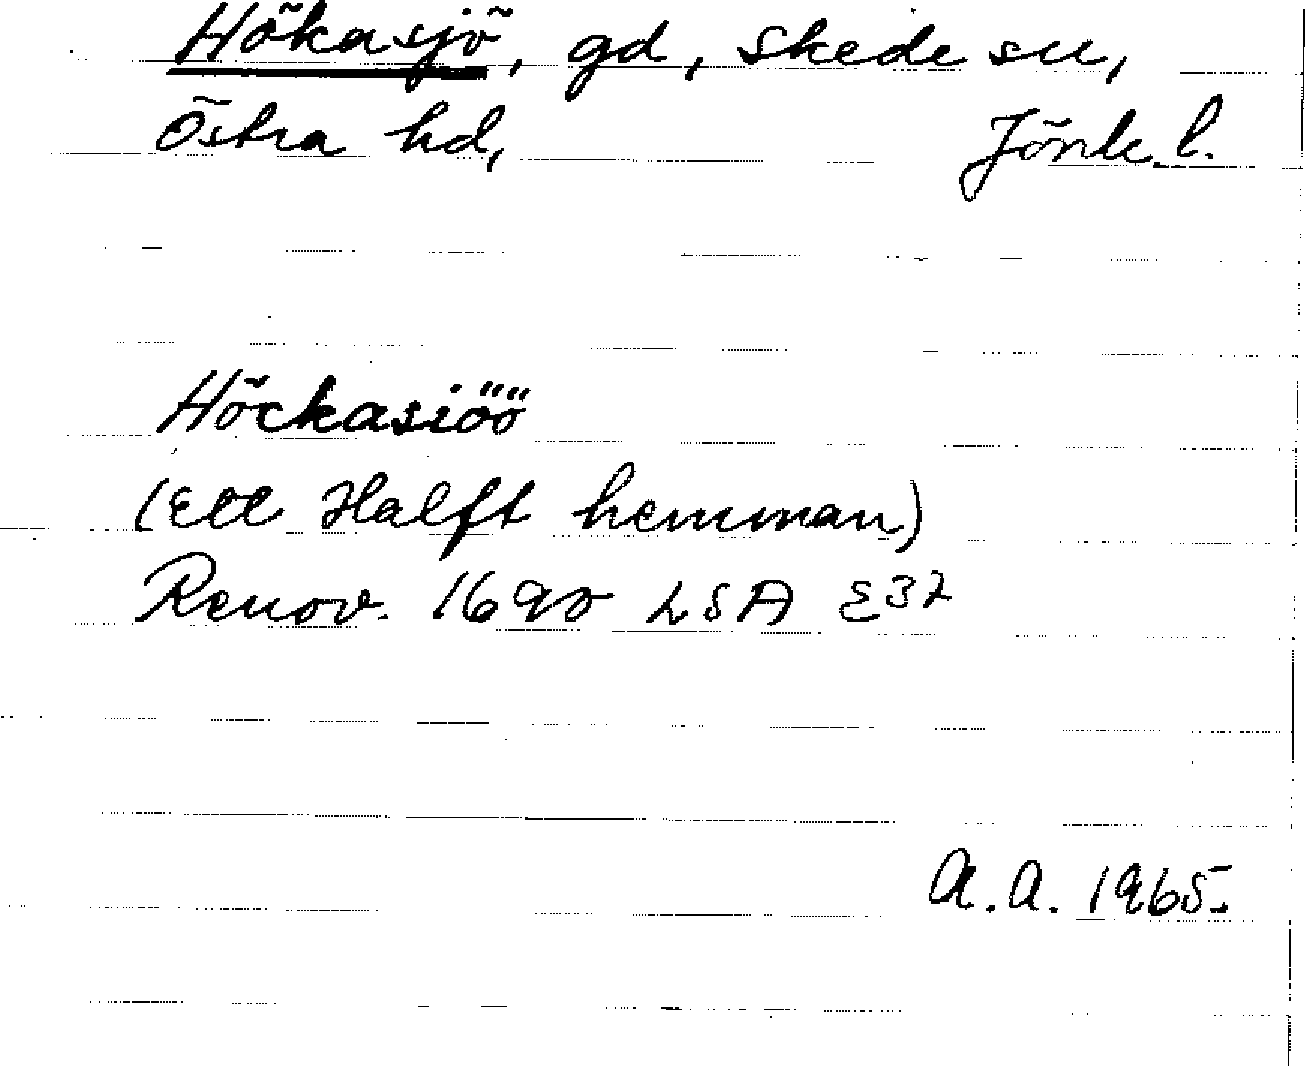 Hökasjö, gd, Skede sn,
Östra hd, Jönk. l.
Höckasiöö
(Ett Halft hemman)
Renov. 1690 LSA E32
A.A. 1965.